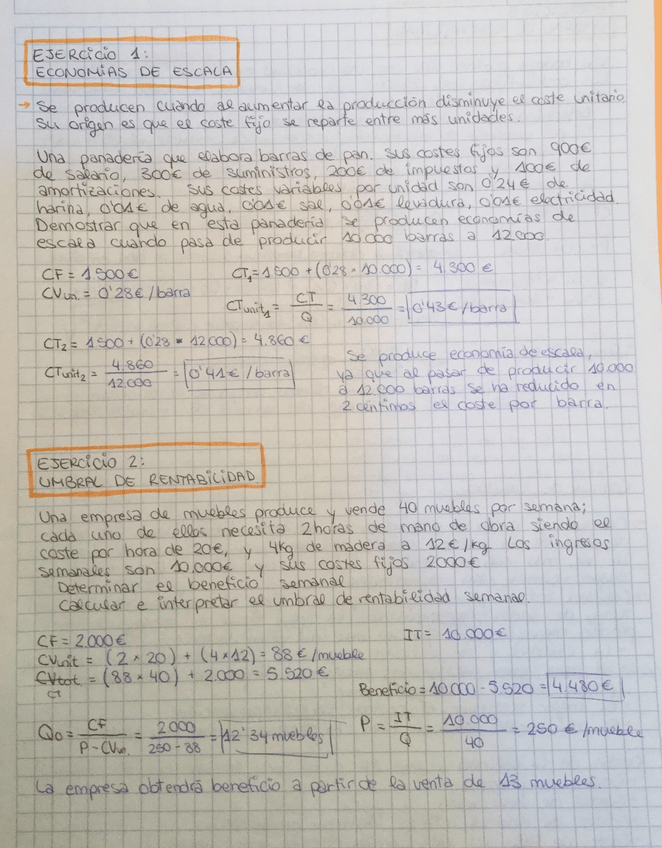 EJERCICIO 1:
ECONOMÍAS DE ESCALA
→ Se producen cuando al aumentar la producción disminuye el coste unitario.
Su origen es que el coste fijo se reparte entre más unidades.
Una panadería que elabora barras de pan. Sus costes fijos son 900€
de salario, 300€ de suministros, 200€ de impuestos y 100€ de
amortizaciones. Sus costes variables por unidad son 0'24€ de
harina, 0'01€ de agua, 0'01€ sal, 0'01€ levadura, 0'01€ electricidad.
Demostrar que en esta panadería se producen economías de
escala cuando pasa de producir 10.000 barras a 12.000
CF = 1500€ CT₁ = 1500 + (0'28 × 10.000) = 4.300 €
CVun. = 0'28€/barra CTunit₁ = CT/Q = 4.300/10.000 = 0'43€/barra
CT₂ = 1500 + (0'28 × 12.000) = 4.860 €
CTunit₂ = 4.860/12.000 = 0'41€/barra
Se produce economía de escala,
ya que al pasar de producir 10.000
a 12.000 barras se ha reducido en
2 céntimos el coste por barra.
EJERCICIO 2:
UMBRAL DE RENTABILIDAD
Una empresa de muebles produce y vende 40 muebles por semana;
cada uno de ellos necesita 2 horas de mano de obra siendo el
coste por hora de 20€, y 4kg de madera a 12€/kg Los ingresos
semanales son 10.000€ y sus costes fijos 2000€
Determinar el beneficio semanal
Calcular e interpretar el umbral de rentabilidad semanal.
CF = 2.000€ IT = 10.000€
CVunit = (2 × 20) + (4 × 12) = 88 €/mueble
CVtot = (88 × 40) + 2.000 = 5.520 €
CT
Beneficio = 10.000 - 5.520 = 4.480€
Q₀ = CF/P - CVun. = 2000/250 - 88 = 12'34 muebles P = IT/Q = 10.000/40 = 250 €/mueble
La empresa obtendrá beneficio a partir de la venta de 13 muebles.